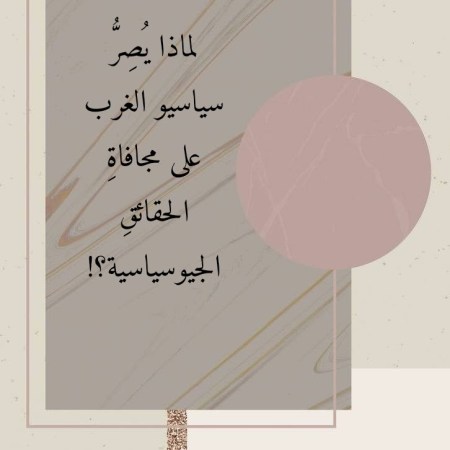 لماذا يُصِرُّ
سياسيو الغرب
على مجافاةِ
الحقائقِ
الجيوسياسية؟!